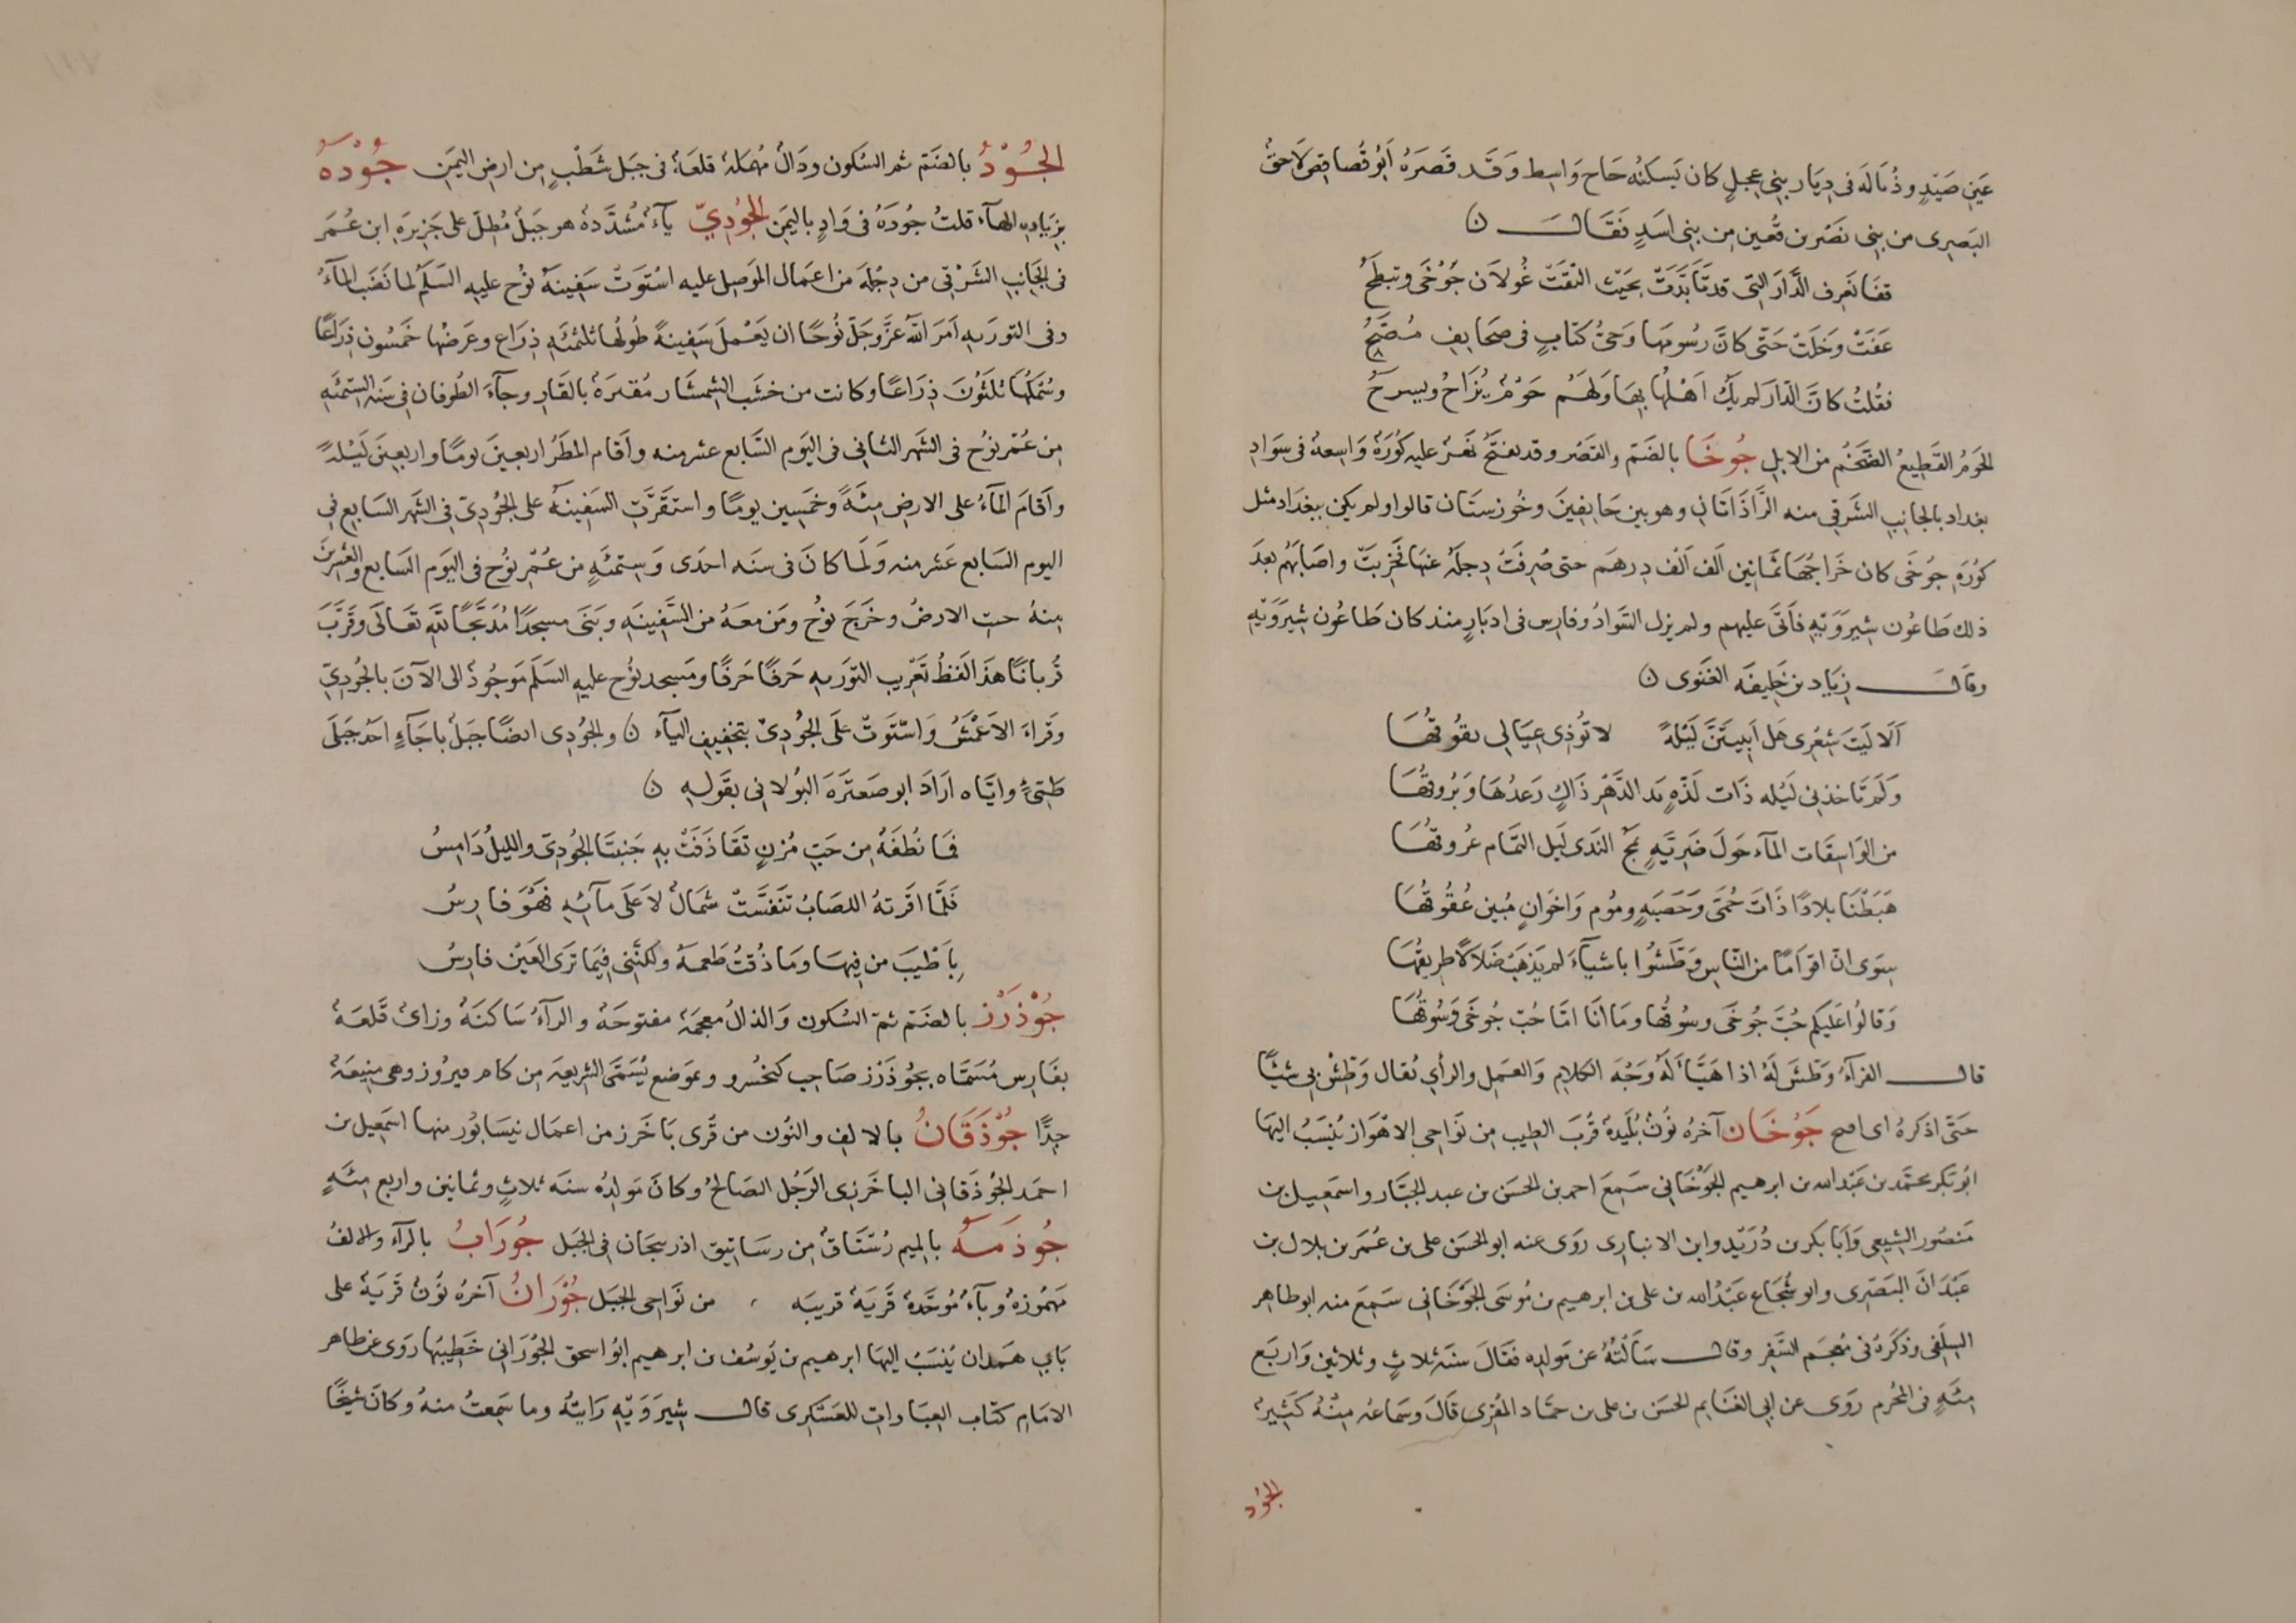 عين صيد وذُبَالَة في ديار بني عجل كان يَسكنُه حَاح وَاسِط وَقَد قَصَرَهُ أَبُو قُصاقِص لَاحِقُ
البَصرِى من بني نَصر بن قُعين مِن بني اسَدٍ فَقَالَ ن
قفَا نَعرِف الدَّارَ التي قد تَأَبَّدَتْ بحَيْث التَقَتْ غُولَان جَوْخَى وتبطَحُ
عَفَتْ وَخَلَتْ حَتّى كانَّ رُسُومَها وَحىُ كتابٍ فى صحَايفِ مُصَّحُ
فقُلتُ كانَّ الدّار لم يكُ اَهْلُها بِهَا وَلَهُم حَوْمٌ يُرَاحُ ويسرَحُ
الحَومُ القَطِيعُ الضَّخمُ من الابِلِ جُوخَا بالضَم والقَصر وقد يفتَحُ نَهَرٌ عليه كُورَةٌ وَاسِعةٌ فى سَوَادِ
بغداد بالجانِبِ الشَرقِي منه الرَّاذَانَانِ وهو بين خَانِقِينَ وخُوزستَان قالوا ولم يكن ببغدَاد مثل
كُورَةِ جُوخَى كان خَرَاجُهَا ثَمانِين اَلف اَلْف دِرهَم حتى صُرِفَتْ دِجلَةُ عنها فَخَرِبَتْ واصَابَهُم بعدَ
ذلك طَاعُون شِيرَوَيْهِ فأتَى عليهم ولم يزل السَّوَادُ وفارس فى ادبَارٍ منذ كان طَاعُون شِيرَوَيْهِ
وقال زِيَاد بن خَلِيفَه الغَنَوى ن
اَلَا لَيْتَ شِعْرِى هَل اَبِيتَنَّ لَيْلَةً لا تُؤذِى عِيَالِى بقُوقُهَا
وَلَم تَاخذنى لَيْله ذَات لَذَّةٍ يَد الدَّهْر ذَاكٍ رَعدُهَا وَبُرُوقُهَا
من الوَاسِقَات المآء حَولَ ضَرِيَّهٍ يمُجُّ النَدى لَيل التَّمام عُرُوقُهَا
هَبَطْنَا بلادًا ذَاتَ حُمَّى وَحَصبَهٍ ومُوم وَاخوَانٍ مُبين عُقُوقُهَا
سِوَى انّ اقوَامًا من النّاسِ وَطَشُوا باشيآءَ لم يَذهَبْ ضَلَالًا طرِيقُهَا
وَقالُوا عَليكم حُبَّ جُوخَى وسُوقَها ومَا اَنَا امَّا حُبّ جُوخَى وَسُوقُهَا
قال الفرآءُ وَطَّشَ لَهُ اذا هَيَّأَ لَهُ وَجْهَ الكلامِ وَالعمَلِ والرأىِ يُقال وَطِّشْ لى شَيْئًا
حَتَّى اذكرهُ اى افتح جَوْخَان آخرهُ نُونٌ بُلَيدةٌ قُربَ الطِيب مِن نَوَاحِى الاهْوَاز يُنسَبُ اليها
ابُو بَكر محمّد بن عَبْد الله بن ابرهيم الجَوْخَانِى سَمِعَ احمد بن الحسَن بن عبد الجَبَّار واسمَعِيل بن
مَنصُور الشِيعِى وَابَا بَكر بن دُرَيْد وابن الانبارِى رَوَى عنه ابو الحسَن على بن عُمَر بن بلال بن
عَبْدَانَ البَصْرِى وابو شُجَاع عَبْدُ الله بن على بن ابرهيم بن مُوسَى الجَوْخَانِى سَمِعَ منه ابو طاهر
السِلَفِى وذَكَرَهُ فى مُعجَم السَّفرِ وقال سَأَلتُهُ عن مَولدِه فقَالَ سنَة ثلاثٍ وثلاثين وَاربَع
مِئَةٍ فى المحُرم رَوَى عن ابى الغنَايم الحسَن بن على بن حمّاد المُقرِى قَالَ وسَماعُه مِنهُ كَثيرٌ
الجود
الجُوْدُ بالضَم ثم السُكون ودَالٌ مُهمَلة قلعَة فى جَبَل شَطْبٍ مِن ارضِ اليَمَنِ جُوْدَةُ
بزيَادةِ الهآءِ قلتُ جُودَةُ فى وَادٍ باليَمَن الجُودِيّ يآءٌ مُشدَّدةٌ هو جَبَلٌ مُطِلّ على جَزِيرَةِ ابن عُمَر
فى الجَانِبِ الشَرْقِى من دِجْلَة من اعمَال المَوصِل عليه اسْتَوَتْ سَفِينَةُ نُوْح عليه السَلَمُ لما نَضَب المآءُ
وفى التورَيهِ اَمَرَ اللهُ عَزَّ وجَلّ نُوحًا ان يَعْملَ سَفِينةً طُولُها ثلثمئَهِ ذِرَاعٍ وعَرضُها خَمسُون ذِرَاعًا
وسُمْكُهَا ثَلَثُونَ ذِرَاعًا وكانت من خشَب الشِمشَار مُقيرَةً بالقَارِ وجآءَ الطُوفان فى سَنه السِتمئَهِ
مِن عُمْرِ نُوْح فى الشهَرِ الثانِى فى اليَوم السَّابع عشر منه واقَام المطَرُ اربعِينَ يومًا واربعِينَ لَيْلةً
واَقامَ المآءُ على الارضِ مِئَةً وخَمسِين يومًا واستقَرَّتِ السَفِينَةُ على الجُودِىّ فِى الشَهرِ السَابعِ فِى
اليوم السَابع عَشر منه وَلَما كانَ فى سَنه احدَى وَسِتمئَهٍ من عُمْرِ نُوْح فى اليَوم السَابع والعِشرِينَ
مِنهُ جفّتِ الارضُ وخَرَجَ نُوْح ومَن معَهُ من السَّفِينَهِ وبَنَى مسجدًا مُذبَحًا للهِ تعَالَى وقَرَّبَ
قُربانًا هذَا لَفظُ تَعْرِيبِ التورَيهِ حَرفًا حَرفًا ومَسجد نُوْح عليهِ السَلَم مَوجُودٌ الى الآنَ بالجُودِىّ
وَقَراءَ الاَعْمَشُ وَاسْتَوَتْ عَلَى الجُوْدِىْ بتخفِيفِ اليآء ن والجُودِى ايضًا جَبَلٌ باجَآءٍ احَدُ جَبَلَى
طَيِّىءٍ وايَّاه ارَادَ ابو صَعتَرَةَ البَولانِى بقَولِهِ ن
فمَا نُطفَةٌ مِن حَبِّ مُزنٍ تقَاذَفَتْ بهِ جَنبتَا الجُودِىّ والليلُ دَامِسُ
فَلَمَّا اقَرتهُ اللصَابُ تنَفسَّتْ شمَالٌ لاَعلَى مآئِهِ فَهْوَ قارِسُ
بِاَطْيَبَ من فِيهَا ومَا ذُقتُ طَعمَهُ ولكنَّنِى فِيمَا تَرَى العَيْنُ فارِسُ
جُوْذَرْز بالضَم ثمّ السُكون وَالذالُ مُعجمَة مفتوحَة والرآءُ سَاكنَةٌ وزاىٌ قَلعَةٌ
بفَارِس مُسَمّاه بجُوذَرْز صَاحِب كيخُسرو وبمَوضع يُسَمَّى الشرِيعهَ مِن كام فيرُوز وهى مَنِيعَةٌ
جِدًّا جُوْذَقَانُ بالالِفِ والنُون من قُرى بَاخَرز من اعمال نيسَابُور منها اسمَعِيل بن
احمَد الجُوْذَقانِى الباخَرزِى الرَجُل الصَالحُ وكانَ مَولدهُ سنَه ثلاثٍ وثمانين واربع مِئَهٍ
جُوذَمَهُ بالميم رُسْتَاقٌ مِن رسَاتِيق اذربيجَان فى الجَبَل جُورَابُ بالرآء والالفُ
مَهمُوزَةٌ وبآءٌ مُوَحَّدةٌ قَرْيَةٌ قرِيبَه من نَواحِى الجبَل جُوْرَانُ آخرهُ نُونٌ قَريَةٌ على
بَابِ هَمدان يُنسَبُ اليهَا ابرهيم بن يُوسُف بن ابرهيم ابُو اسحق الجُورَانِى خَطِيبُها رَوَى عن طاهر
الامَامِ كتاب العِبَادات للعَسْكرِى قال شِيرَوَيْهِ رَايتُهُ وما سَمِعتُ منهُ وكانَ شَيْخًا